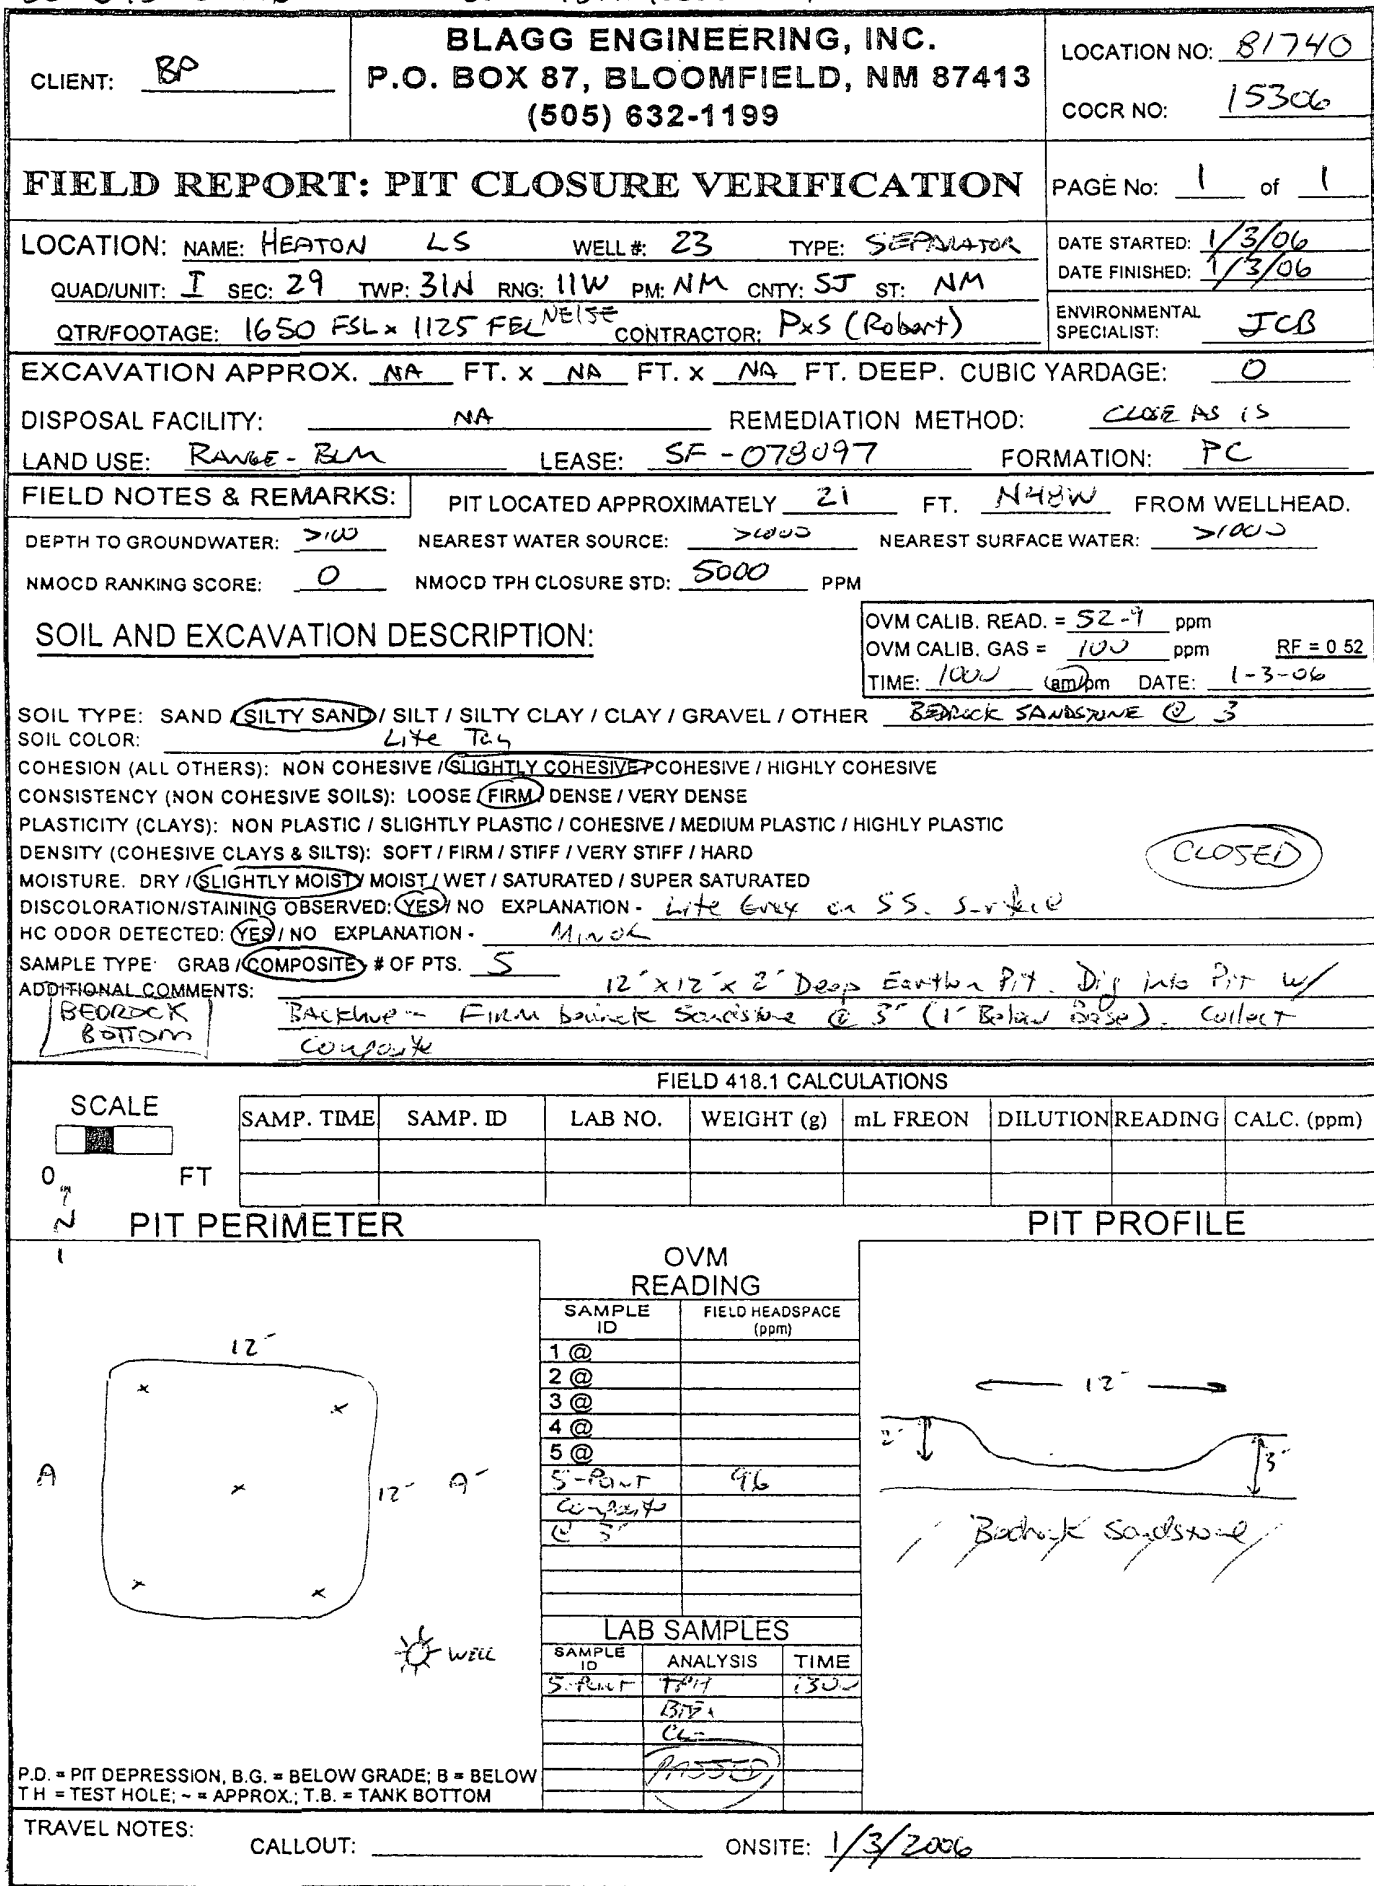 BLAGG ENGINEERING, INC.
P.O. BOX 87, BLOOMFIELD, NM 87413
(505) 632-1199
CLIENT: BP
LOCATION NO: 81740
COCR NO: 15306
FIELD REPORT: PIT CLOSURE VERIFICATION
PAGE No: 1 of 1
LOCATION: NAME: HEATON LS WELL #: 23 TYPE: SEPARATOR
DATE STARTED: 1/3/06
DATE FINISHED: 1/3/06
QUAD/UNIT: I SEC: 29 TWP: 31N RNG: 11W PM: NM CNTY: SJ ST: NM
QTR/FOOTAGE: 1650 FSL x 1125 FEL NE/SE CONTRACTOR: PxS (Robert)
ENVIRONMENTAL
SPECIALIST: JCB
EXCAVATION APPROX. NA FT. x NA FT. x NA FT. DEEP. CUBIC YARDAGE: 0
DISPOSAL FACILITY: NA REMEDIATION METHOD: CLOSE AS IS
LAND USE: RANGE - BLM LEASE: SF-078097 FORMATION: PC
FIELD NOTES & REMARKS: PIT LOCATED APPROXIMATELY 21 FT. N48W FROM WELLHEAD.
DEPTH TO GROUNDWATER: >100 NEAREST WATER SOURCE: >1000 NEAREST SURFACE WATER: >1000
NMOCD RANKING SCORE: 0 NMOCD TPH CLOSURE STD: 5000 PPM
SOIL AND EXCAVATION DESCRIPTION:
OVM CALIB. READ. = 52.9 ppm
OVM CALIB. GAS = 100 ppm RF = 0 52
TIME: 1000 am/pm DATE: 1-3-06
SOIL TYPE: SAND / SILTY SAND / SILT / SILTY CLAY / CLAY / GRAVEL / OTHER BEDROCK SANDSTONE @ 3
SOIL COLOR: Lite Tan
COHESION (ALL OTHERS): NON COHESIVE / SLIGHTLY COHESIVE / COHESIVE / HIGHLY COHESIVE
CONSISTENCY (NON COHESIVE SOILS): LOOSE / FIRM / DENSE / VERY DENSE
PLASTICITY (CLAYS): NON PLASTIC / SLIGHTLY PLASTIC / COHESIVE / MEDIUM PLASTIC / HIGHLY PLASTIC
DENSITY (COHESIVE CLAYS & SILTS): SOFT / FIRM / STIFF / VERY STIFF / HARD
CLOSED
MOISTURE. DRY / SLIGHTLY MOIST / MOIST / WET / SATURATED / SUPER SATURATED
DISCOLORATION/STAINING OBSERVED: YES / NO EXPLANATION - Lite Grey on SS. Surface
HC ODOR DETECTED: YES / NO EXPLANATION - Minor
SAMPLE TYPE: GRAB / COMPOSITE # OF PTS. 5
ADDITIONAL COMMENTS: 12' x 12' x 2' Deep Earthen Pit. Dig into Pit w/
BEDROCK
BOTTOM
Backhoe - Firm bedrock Sandstone @ 3' (1' Below Base). Collect
Composite
FIELD 418.1 CALCULATIONS
SCALE
0 FT
SAMP. TIME SAMP. ID LAB NO. WEIGHT (g) mL FREON DILUTION READING CALC. (ppm)
N
PIT PERIMETER
PIT PROFILE
12'
A
12'
A'
WELL
OVM
READING
SAMPLE
ID
FIELD HEADSPACE
(ppm)
1 @
2 @
3 @
4 @
5 @
5-Point 96
Composite
@ 3'
12'
2'
3'
Bedrock Sandstone
LAB SAMPLES
SAMPLE
ID
ANALYSIS TIME
5-Point TPH 1300
BTEX
CL-
PASSED
P.D. = PIT DEPRESSION, B.G. = BELOW GRADE; B = BELOW
T H = TEST HOLE; ~ = APPROX.; T.B. = TANK BOTTOM
TRAVEL NOTES:
CALLOUT: ONSITE: 1/3/2006